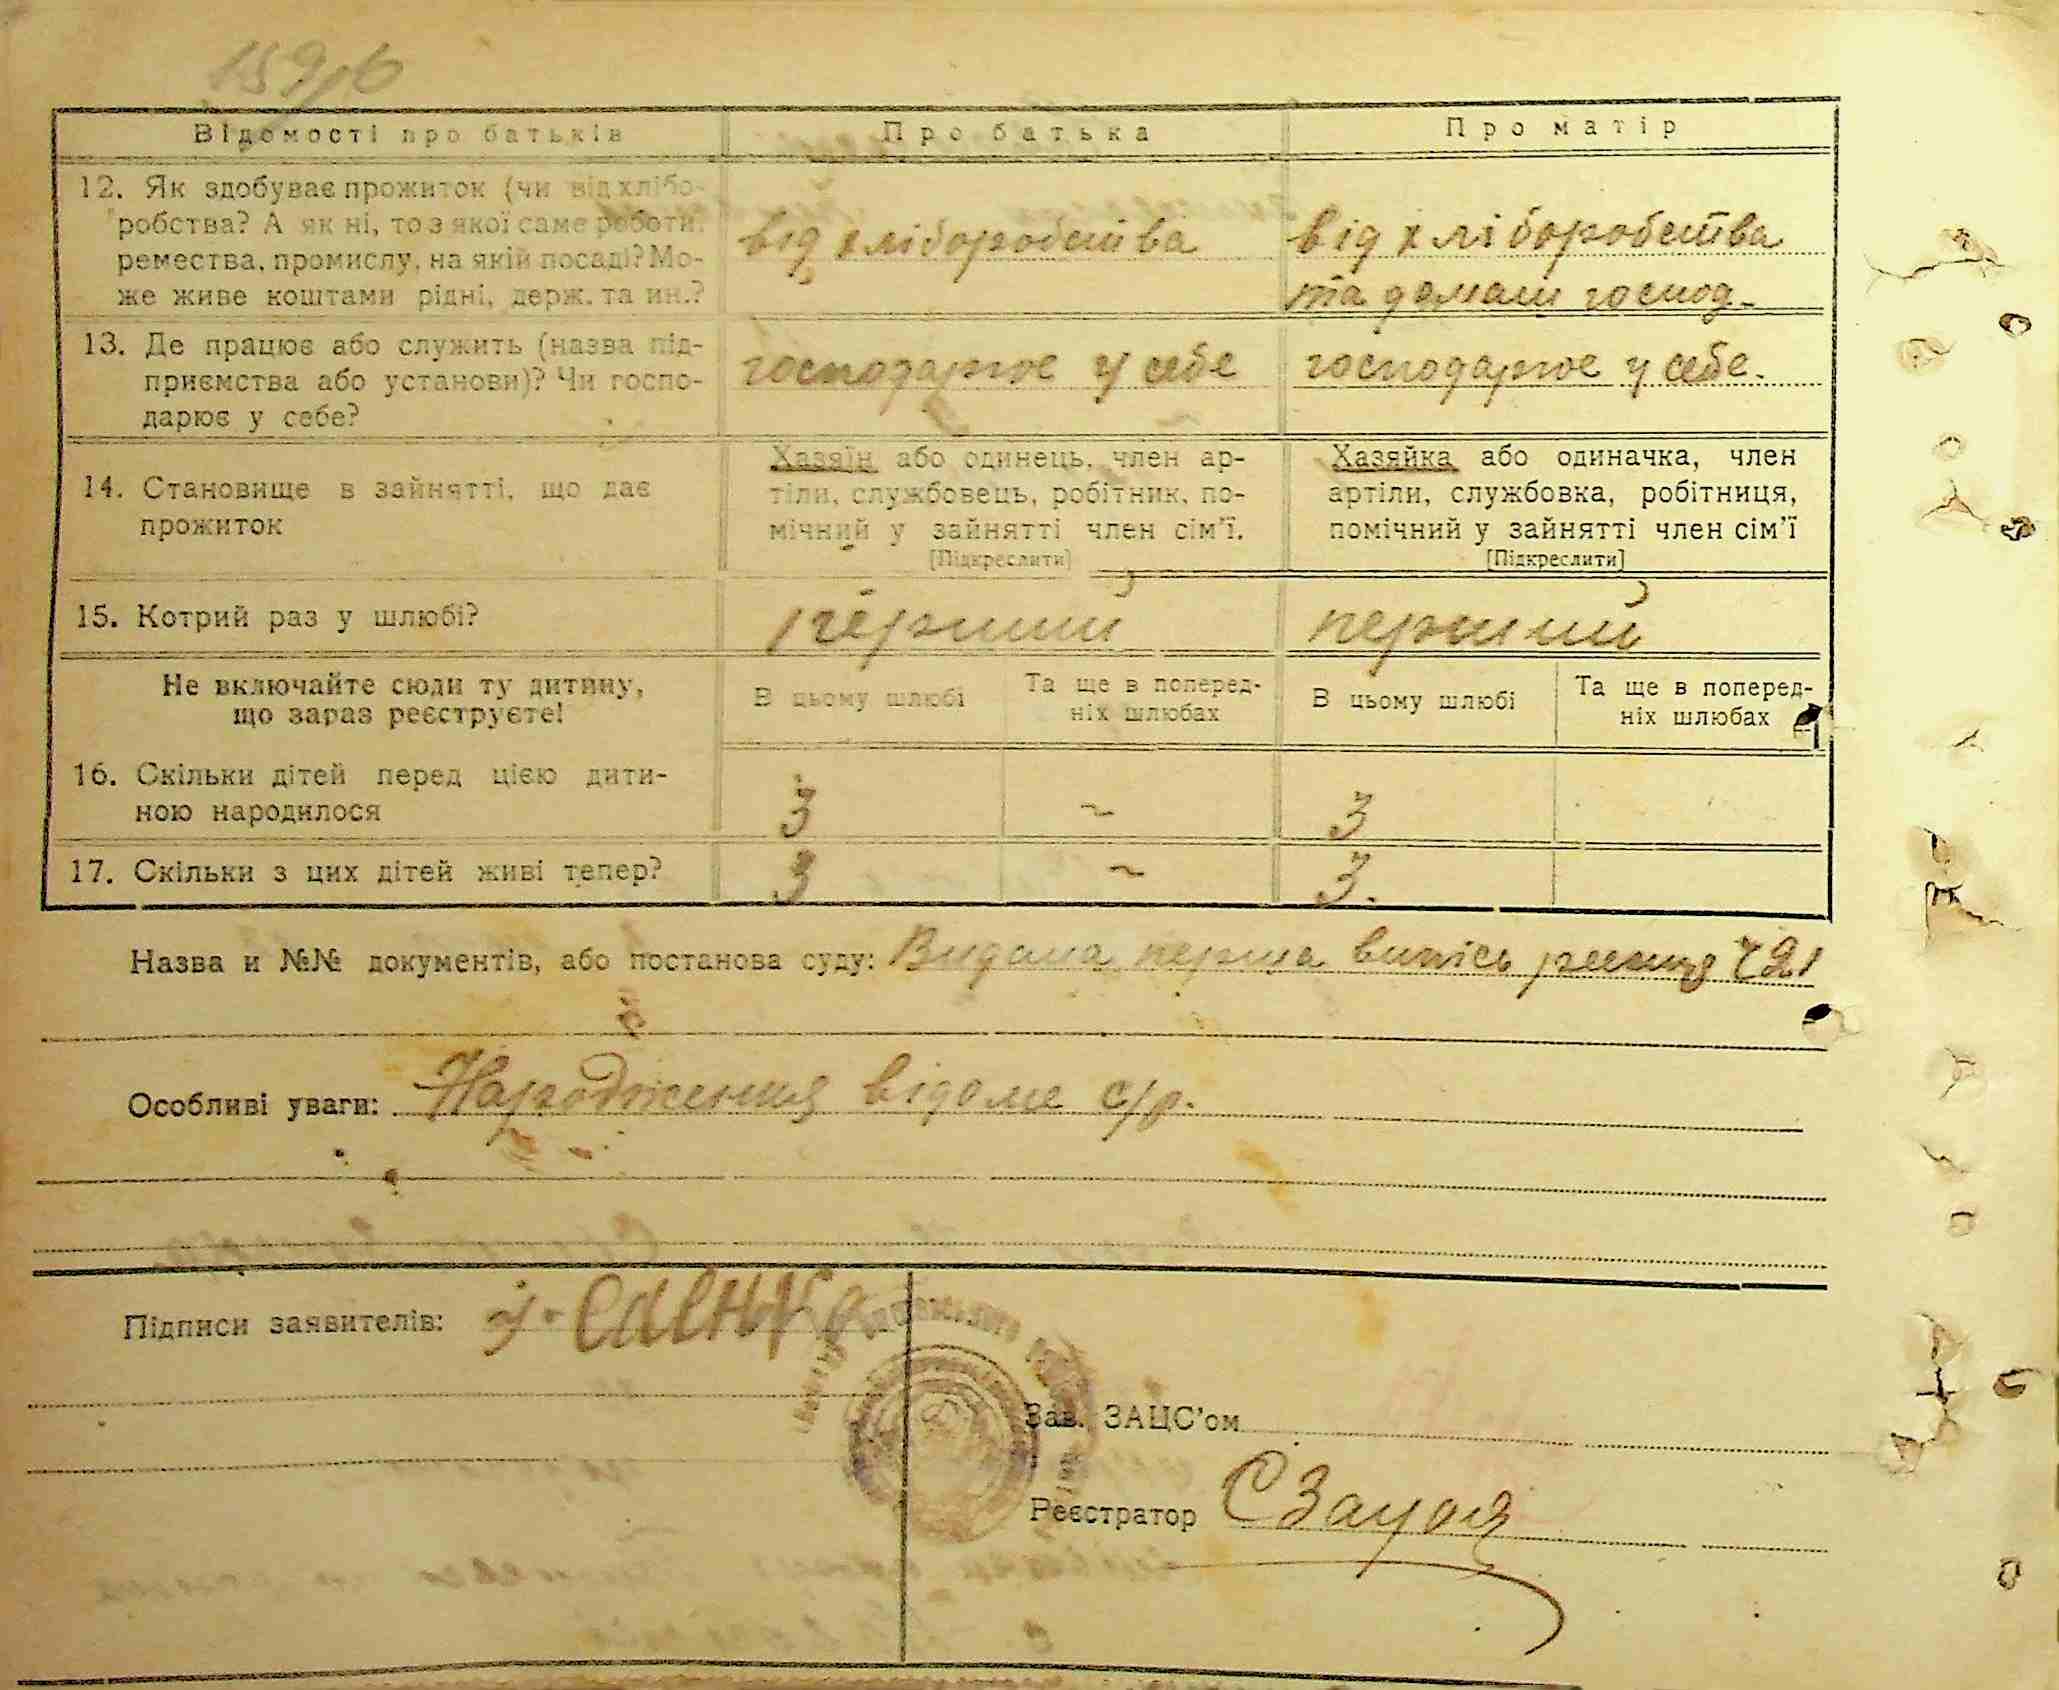 Відомості про батьків Про батька Про матір
12. Як здобуває прожиток (чи від хлібо-
робства? А як ні, то з якої саме роботи,
ремества, промислу, на якій посаді? Мо-
же живе коштами рідні, держ. та ин.?
від хліборобства
від хліборобства
та домаш господ.
13. Де працює або служить (назва під-
приємства або установи)? Чи госпо-
дарює у себе?
господарює у себе
господарює у себе.
14. Становище в зайнятті, що дає
прожиток
Хазяїн або одинець, член ар-
тіли, службовець, робітник, по-
мічний у зайнятті член сім'ї.
[Підкреслити]
Хазяйка або одиначка, член
артіли, службовка, робітниця,
помічний у зайнятті член сім'ї
[Підкреслити]
15. Котрий раз у шлюбі? перший перший
Не включайте сюди ту дитину,
що зараз реєструєте!
В цьому шлюбі
Та ще в поперед-
ніх шлюбах
В цьому шлюбі
Та ще в поперед-
ніх шлюбах
16. Скільки дітей перед цією дити-
ною народилося
3 ~ 3
17. Скільки з цих дітей живі тепер? 3 ~ 3.
Назва и №№ документів, або постанова суду: Видана перша випись
Особливі уваги: Народження відоме с/р.
Підписи заявителів:
Зав. ЗАЦС'ом
Реєстратор